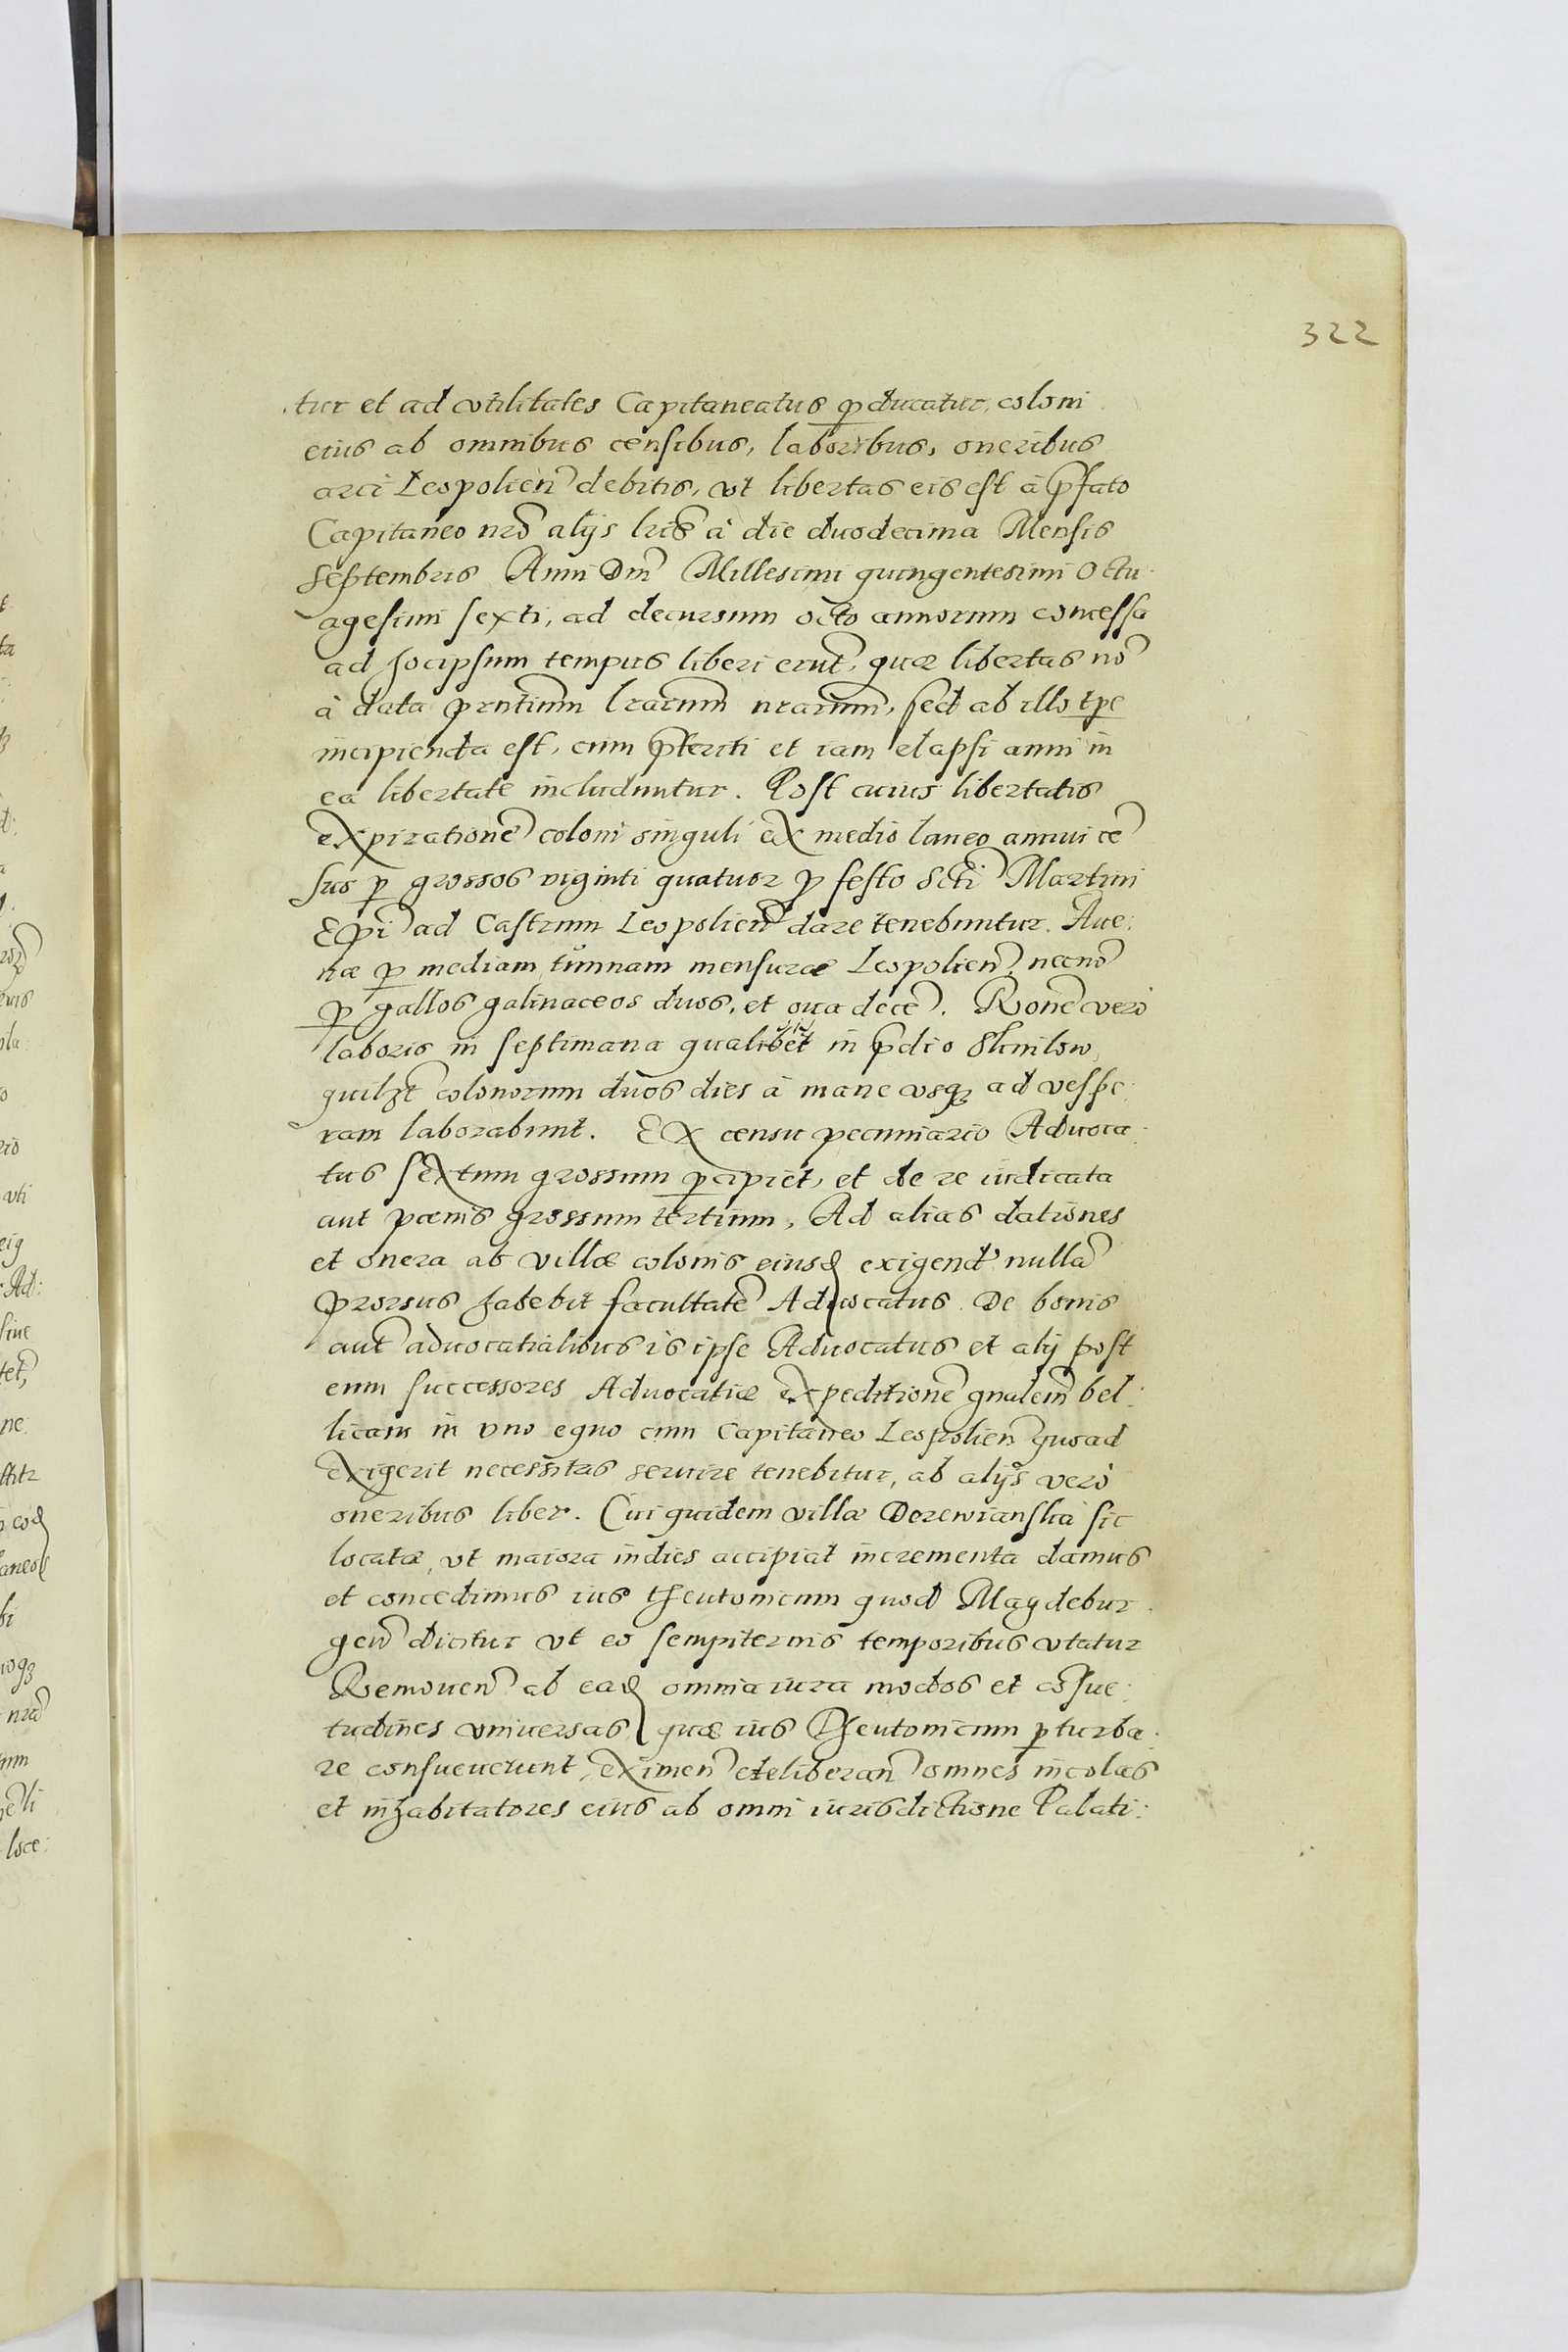 322
tur et ad vtilitates Capitaneatus p̱ducatur, coloni
eius ab omnibus censibus, laboribus, oneribus
arci Leopolien̄ debitis, vt libertas eis est à p̄fato
Capitaneo nrō alijs lr̄is à die duodecima Mensis
Septembris Anni Dnī Millesimi quingentesimi Octu
agesimi sexti, ad decursum octo annorum concessa
ad hocipsum tempus liberi erūt, quæ libertas nō
à data pr̄ntium lr̄arum nr̄arum, sed ab illo tp̱e
incipienda est, cum p̄teriti et iam elapsi anni in
ea libertate includuntur. Post cuius libertatis
expirationē coloni singuli ex medio laneo annui cē
sus p̱ grossos viginti quatuor p̱ festo Sctī Martini
Ep̄i ad Castrum Leopolien̄ dare tenebuntur. Aue:
næ p̱ mediam tunnam mensuræ Leopolien̄, necnō
p̱ gallos galinaceos duos, et oua decē. Rōne verò
laboris in septimana qualibet in p̄dio Sknilow
quilḥt colonorum duos dies à mane vsq̨ ad vespe:
ram laborabunt. Ex censu pecuniario Aduoca:
tus sextum grossum p̱cipiet, et de re iudicata
aut pœnis grossum tertium, Ad alias dationes
et onera ab villæ colonis eiusd exigend nullā
prorsus habebit facultatē Aduocatus. De bonis
aut̄ aduocatialibus is ipse Aduocatus et alij post
eum successores Aduocatiæ expeditionē gnālem bel:
licam in vno equo cum Capitaneo Leopolien̄ quoad
exigerit necessitas seruire tenebitur, ab alijs verò
oneribus liber. Cui quidem villæ Derewianska sic
locatæ, vt maiora indies accipiat incrementa damus
et concedimus ius theutonicum quod Magdebur
gen̄ dicitur vt eo sempiternis temporibus vtatur
Remouen̄ ab ead omnia iura modos et cōsue:
tudines vniuersas quæ ius Theutonicum p̱turba:
re consueuerunt, eximen̄ et liberan̄ omnes incolas
et inhabitatores eius ab omni iurisdictione Palati: